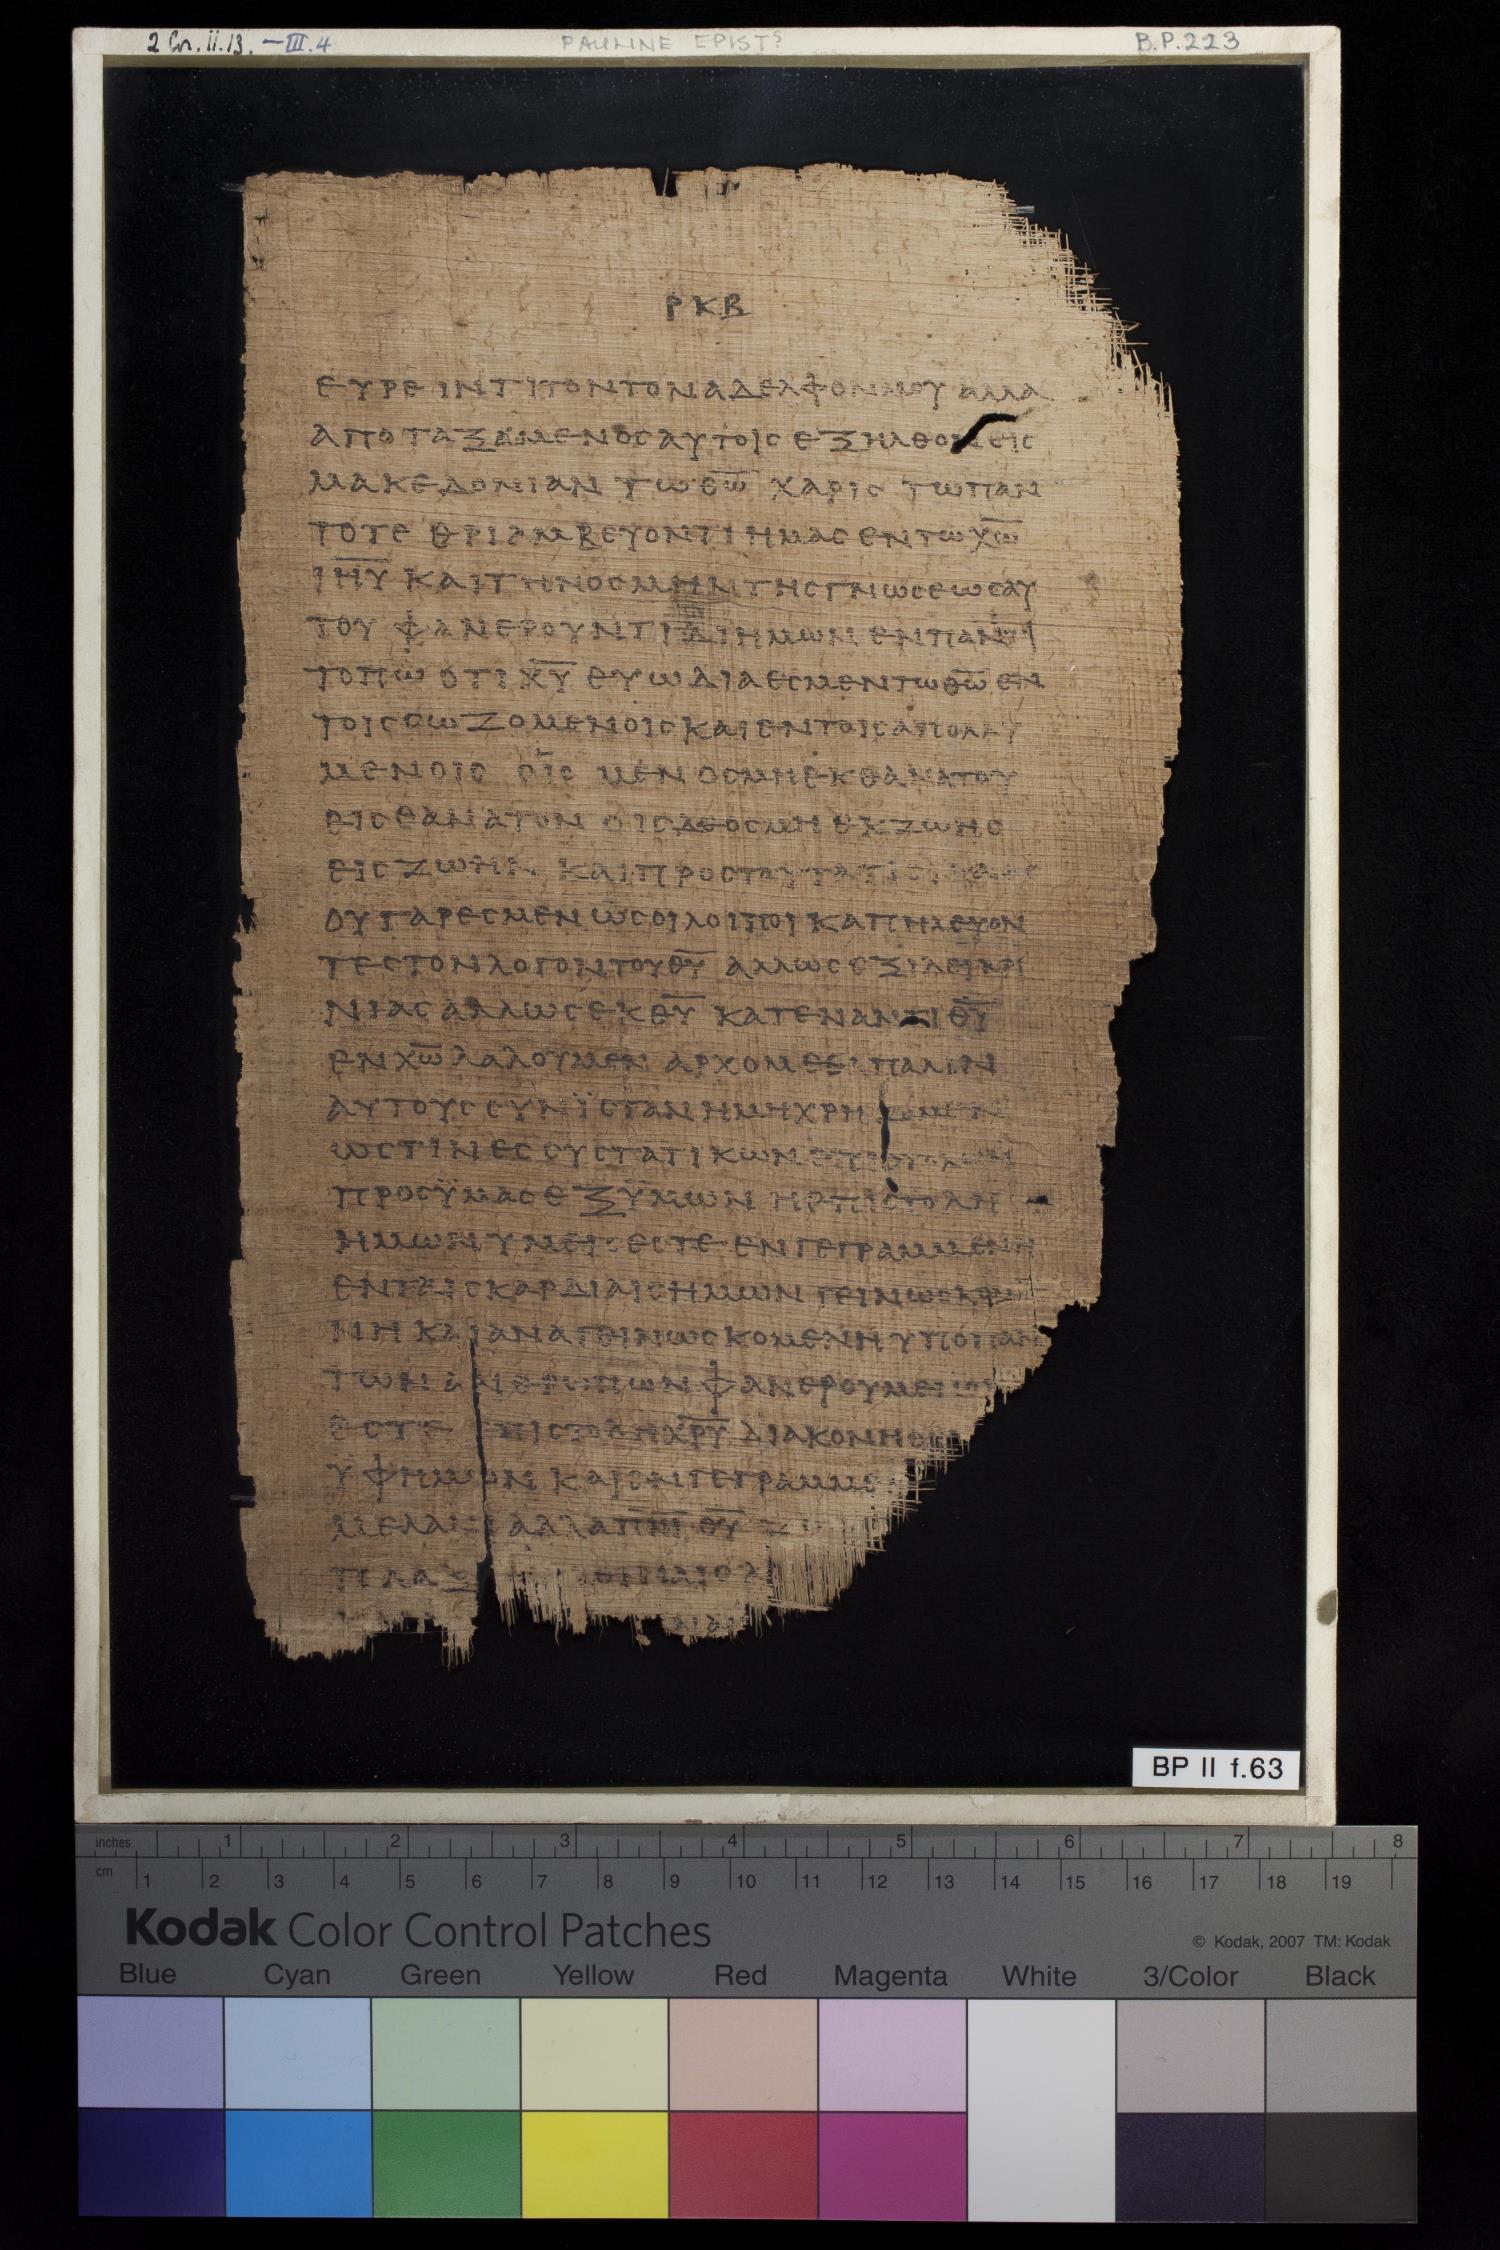 2 Cor. II. 13. – III. 4 PAULINE EPISTS B.P. 223
ΡΚΒ
ΕΥΡΕΙΝΤΙΤΟΝΤΟΝΑΔΕΛΦΟΝΜΟΥ ΑΛΛΑ
ΑΠΟΤΑΞΑΜΕΝΟΣΑΥΤΟΙΣ ΕΞΗΛΘΟΝΕΙΣ
ΜΑΚΕΔΟΝΙΑΝ ΤΩΘΩ ΧΑΡΙΣ ΤΩΠΑΝ
ΤΟΤΕ ΘΡΙΑΜΒΕΥΟΝΤΙΗΜΑΣ ΕΝΤΩΧΩ
ΙΗΥ ΚΑΙΤΗΝΟΣΜΗΝΤΗΣΓΝΩΣΕΩΣΑΥ
ΤΟΥ ΦΑΝΕΡΟΥΝΤΙΔΙΗΜΩΝ ΕΝΠΑΝΤΙ
ΤΟΠΩ ΟΤΙ ΧΥ ΕΥΩΔΙΑΕΣΜΕΝΤΩΘΩ ΕΝ
ΤΟΙΣΣΩΖΟΜΕΝΟΙΣΚΑΙΕΝΤΟΙΣΑΠΟΛΛΥ
ΜΕΝΟΙΣ ΟΙΣ ΜΕΝ ΟΣΜΗΕΚΘΑΝΑΤΟΥ
ΕΙΣΘΑΝΑΤΟΝ ΟΙΣΔΕΟΣΜΗ ΕΚΖΩΗΣ
ΕΙΣΖΩΗΝ ΚΑΙΠΡΟΣΤΑΥΤΑΤΙΣ
ΟΥΓΑΡΕΣΜΕΝ ΩΣΟΙΛΟΙΠΟΙ ΚΑΠΗΛΕΥΟΝ
ΤΕΣΤΟΝΛΟΓΟΝΤΟΥΘΥ ΑΛΛΩΣ ΕΞΙΛΕΙΚΡΙ
ΝΙΑΣ ΑΛΛΩΣ ΕΚ ΘΥ ΚΑΤΕΝΑΝΤΙ ΘΥ
ΕΝΧΩ ΛΑΛΟΥΜΕΝ ΑΡΧΟΜΕΘΑ ΠΑΛΙΝ
ΑΥΤΟΥΣ ΣΥΝΪΣΤΑΝ ΗΜΗΧΡΗ
ΩΣΤΙΝΕΣ ΣΥΣΤΑΤΙΚΩΝ
ΠΡΟΣΫΜΑΣ ΕΞΫΜΩΝ ΗΕΠΙΣΤΟΛΗ
ΗΜΩΝ ΥΜΕΙΣ ΕΣΤΕ ΕΝΓΕΓΡΑΜΜΕΝΗ
ΕΝΤΑΙΣ ΚΑΡΔΙΑΙΣΗΜΩΝ ΓΕΙΝΩΣΚΟΜΕ
ΝΗ ΚΑΙΑΝΑΓΕΙΝΩΣΚΟΜΕΝΗ ΥΠΟΠΑΝ
ΤΩΝ ΑΝΘΡΩΠΩΝ ΦΑΝΕΡΟΥΜΕΝΟΙ
ΕΣΤΕ ΕΠΙΣΤΟΛΗΧΡΥ ΔΙΑΚΟΝΗΘΕΙ
ΫΦΗΜΩΝ ΚΑΙΕΝΓΕΓΡΑΜΜΕ
ΜΕΛΑΝΙ ΑΛΛΑΠΝΙ ΘΥ
ΠΛΑΞ
BP II f.63
inches 1 2 3 4 5 6 7 8
cm 1 2 3 4 5 6 7 8 9 10 11 12 13 14 15 16 17 18 19
Kodak Color Control Patches © Kodak, 2007 TM: Kodak
Blue Cyan Green Yellow Red Magenta White 3/Color Black